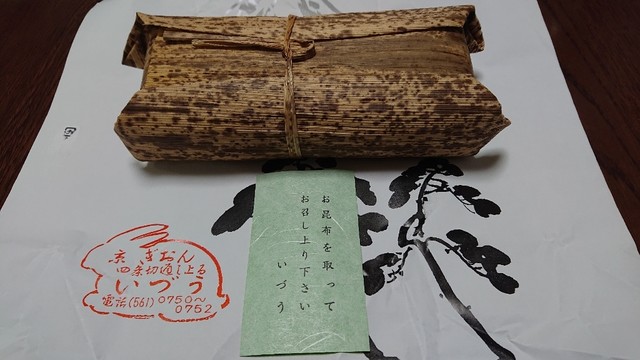 お昆布を取って
お召し上り下さい
いづう
京ぎおん
四条切通し上る
いづう
電話(561)0750〜
0752